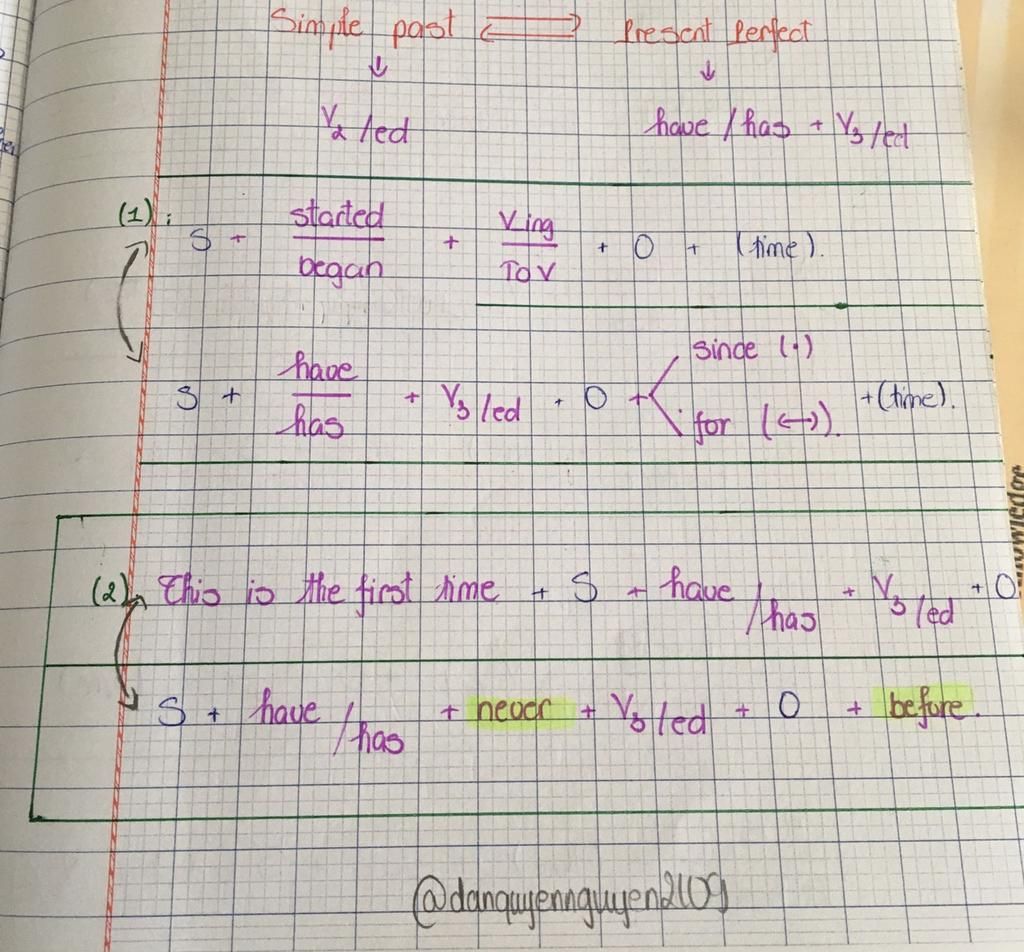 Simple past ⇌ Present Perfect
↓ ↓
V2/ed have/has + V3/ed
(1): S + started/began + Ving/To V + O + (time).
S + have/has + V3/ed + O + < since (·) / for (↔). + (time).
(2) This is the first time + S + have/has + V3/ed + O
S + have/has + never + V3/ed + O + before.
@danquyennguyen2109